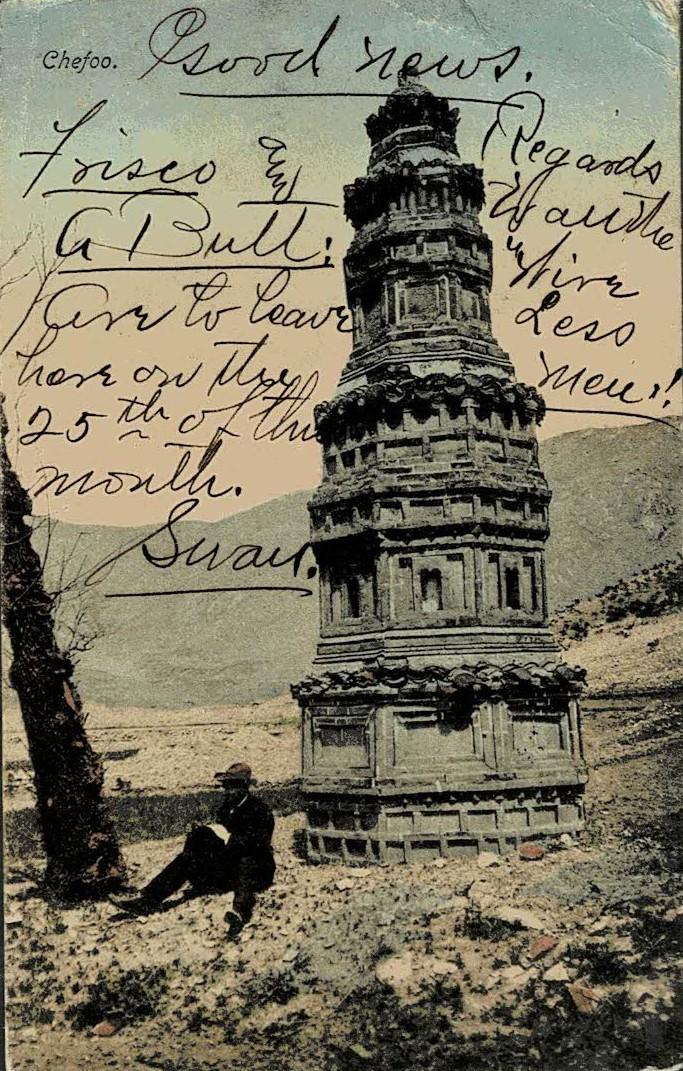 Chefoo.
Good news.
Frisco and
A Bull:
Are to leave
here on the
25th of this
month.
Swan.
Regards
to all the
"Wire
Less
men"!